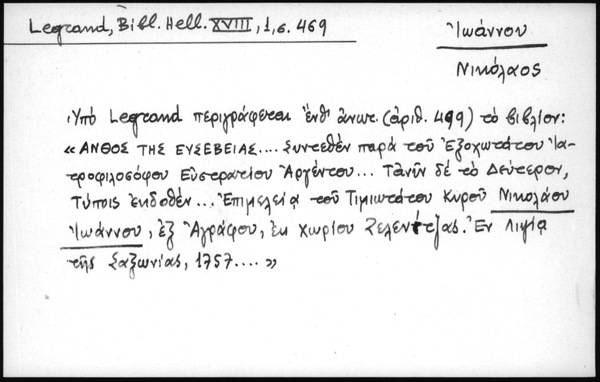 Legrand, Bibl. Hell. XVIII, 1, σ. 469
Ἰωάννου
Νικόλαος
Ὑπό Legrand περιγράφεται ἔνθ' ἀνωτ. (ἀριθ. 499) τὸ βιβλίον:
« ΑΝΘΟΣ ΤΗΣ ΕΥΣΕΒΕΙΑΣ.... Συντεθέν παρά τοῦ Ἐξοχωτάτου Ἰα-
τροφιλοσόφου Εὐστρατίου Ἀργέντου... Τανῦν δέ τό Δεύτερον,
Τύποις ἐκδοθέν... Ἐπιμελείᾳ τοῦ Τιμιωτάτου Κυροῦ Νικολάου
Ἰωάννου, ἐξ Ἀγράφου, ἐκ χωρίου Ζελενίτζας. Ἐν Λιψίᾳ
τῆς Σαξωνίας, 1757.... »